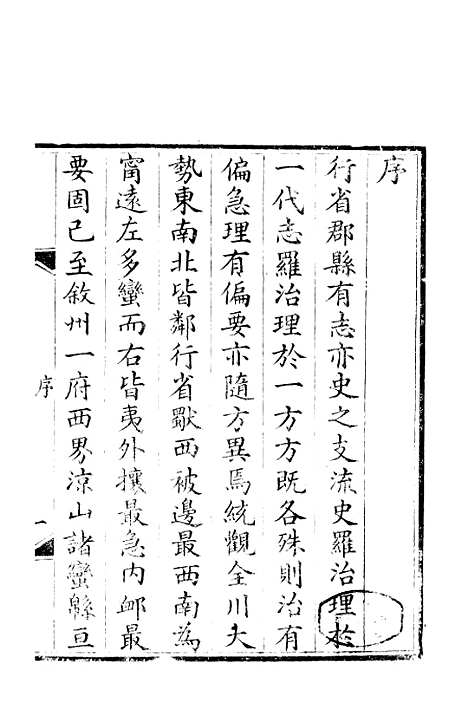 序
行省郡縣有志亦史之支流史羅治理於
一代志羅治理於一方方既各殊則治有
偏急理有偏要亦隨方異焉統觀全川大
勢東南北皆鄰行省獸西被邊最西南為
甯遠左多蠻而右皆夷外攘最急内䘏最
要固已至敘州一府西界涼山諸蠻緜亘
序
一